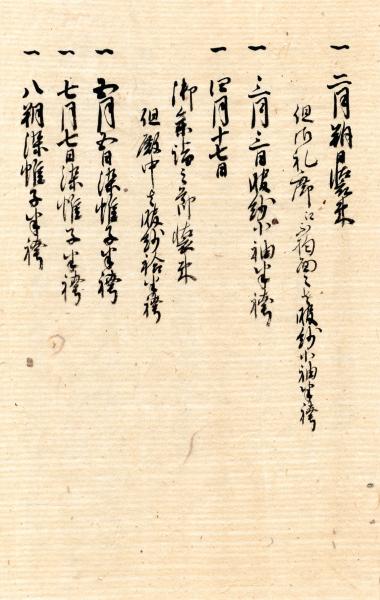 一 二月朔日装束
但御礼席江不罷出面々者服紗小袖半袴
一 三月三日服紗小袖半袴
一 四月十七日
御参詣之節装束
但殿中者服紗袷半袴
一 五月五日染帷子半袴
一 七月七日染帷子半袴
一 八朔染帷子半袴